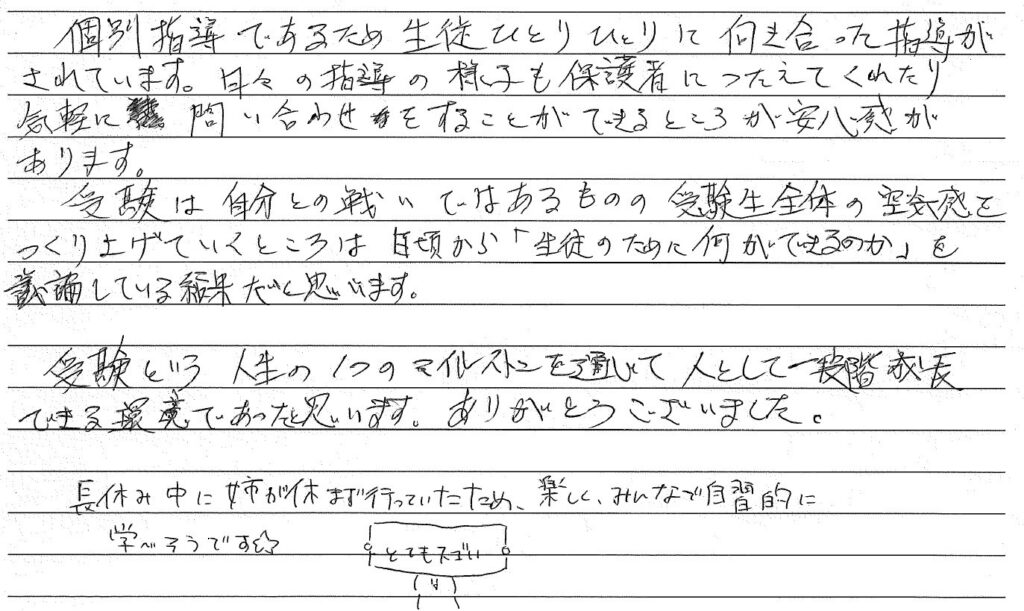 個別指導であるため生徒ひとりひとりに向き合った指導が
されています。日々の指導の様子も保護者につたえてくれたり
気軽に問い合わせをすることができるところが安心感が
あります。
受験は自分との戦いではあるものの受験生全体の空気感を
つくり上げていくところは日頃から「生徒のために何ができるのか」を
議論している結果だと思います。
受験という人生の1つのマイルストンを通じて人として一段階成長
できる環境であったと思います。ありがとうございました。
長休み中に姉が休まず行っていたため、楽しく、みんなで自習的に
学べそうです☆
とてもスゴい